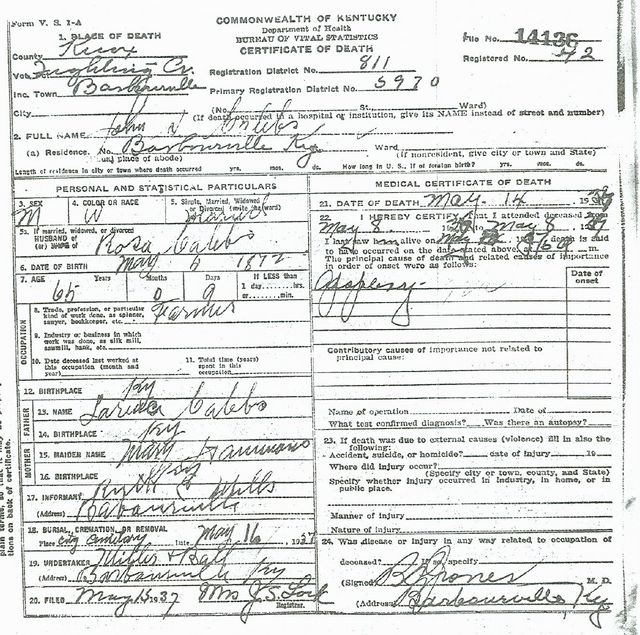 Form V. S. 1-A
COMMONWEALTH OF KENTUCKY
Department of Health
BUREAU OF VITAL STATISTICS
CERTIFICATE OF DEATH
File No. 14136
Registered No. 42
1. PLACE OF DEATH
County Knox
Registration District No. 811
Inc. Town Barbourville
Primary Registration District No. 5970
City (No. St., Ward)
(If death occurred in a hospital or institution, give its NAME instead of street and number)
2. FULL NAME John Calebs
(a) Residence. No. Barbourville Ky Ward
(Usual place of abode) (If nonresident, give city or town and State)
Length of residence in city or town where death occurred yrs. mos. ds. How long in U. S., if of foreign birth? yrs. mos. ds.
PERSONAL AND STATISTICAL PARTICULARS
3. SEX M
4. COLOR OR RACE W
5. Single, Married, Widowed or Divorced (write the word) Married
5a. If married, widowed, or divorced
HUSBAND of
(or) WIFE of Rosa Calebs
6. DATE OF BIRTH May 5 1872
7. AGE 65 Years 0 Months 9 Days
If LESS than
1 day, hrs.
or min.
OCCUPATION
8. Trade, profession, or particular
kind of work done, as spinner,
sawyer, bookkeeper, etc. Farmer
9. Industry or business in which
work was done, as silk mill,
sawmill, bank, etc.
10. Date deceased last worked at
this occupation (month and
year)
11. Total time (years)
spent in this
occupation
12. BIRTHPLACE Ky
FATHER
13. NAME Calebs
14. BIRTHPLACE Ky
MOTHER
15. MAIDEN NAME Mary Hammons
16. BIRTHPLACE Ky
17. INFORMANT Mills
(Address) Barbourville
18. BURIAL, CREMATION, OR REMOVAL
Place City Cemetery Date May 16 1937
19. UNDERTAKER Miller & Ball
(Address) Barbourville Ky
20. FILED May 15 1937 Mrs J.S. Lock
Registrar.
MEDICAL CERTIFICATE OF DEATH
21. DATE OF DEATH May 14 1937
22. I HEREBY CERTIFY, that I attended deceased from
May 8 1937 to May 8 1937
I last saw him alive on May 1937, death is said
to have occurred on the date stated above, at m.
The principal cause of death and related causes of importance
in order of onset were as follows:
Date of
onset
Apoplexy
Contributory causes of importance not related to
principal cause:
Name of operation Date of
What test confirmed diagnosis? Was there an autopsy?
23. If death was due to external causes (violence) fill in also the
following:
Accident, suicide, or homicide? date of injury 19
Where did injury occur?
(Specify city or town, county, and State)
Specify whether injury occurred in industry, in home, or in
public place.
Manner of injury
Nature of injury
24. Was disease or injury in any way related to occupation of
deceased? If so, specify
(Signed) Jones M. D.
(Address) Barbourville Ky
plain terms, so that it may be
tions on back of certificate.